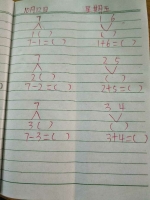 7 1 6
1 ( ) ( )
7-1=( ) 1+6=( )
7 2 5
2 ( ) ( )
7-2=( ) 2+5=( )
7 3 4
3 ( ) ( )
7-3=( ) 3+4=( )